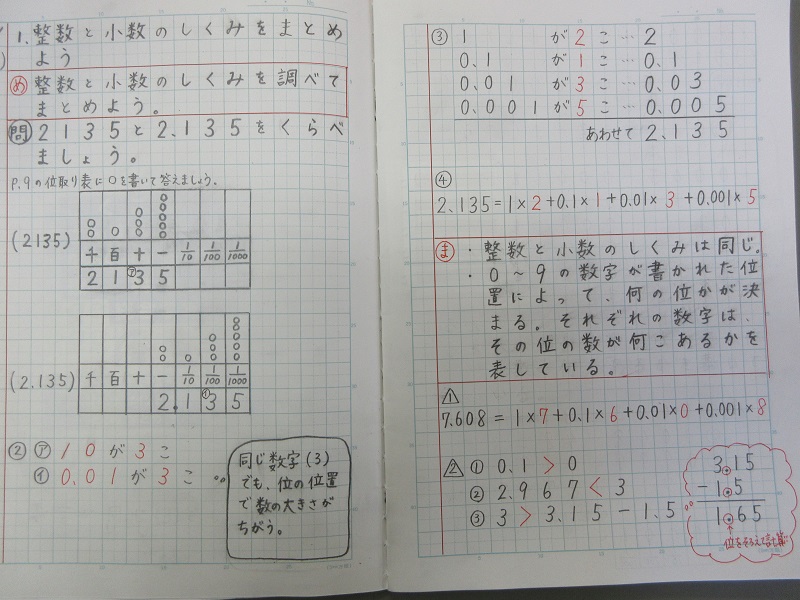 1. 整数と小数のしくみをまとめ
よう
め 整数と小数のしくみを調べて
まとめよう。
問 2135と2.135をくらべ
ましょう。
P.9の位取り表に○を書いて答えましょう。
(2135)
千 百 十 一 1/10 1/100 1/1000
2 1 ㋐3 5
(2.135)
千 百 十 一 1/10 1/100 1/1000
2.1 ㋑3 5
② ㋐ 10が3こ
㋑ 0.01が3こ
同じ数字(3)
でも、位の位置
で数の大きさが
ちがう。
③ 1 が2こ…2
0.1 が1こ…0.1
0.01 が3こ…0.03
0.001が5こ…0.005
あわせて 2.135
④
2.135=1×2+0.1×1+0.01×3+0.001×5
ま ・整数と小数のしくみは同じ。
・0〜9の数字が書かれた位
置によって、何の位かが決
まる。それぞれの数字は、
その位の数が何こあるかを
表している。
△1
7.608=1×7+0.1×6+0.01×0+0.001×8
△2 ① 0.1 > 0
② 2.967 < 3
③ 3 > 3.15-1.5
3.15
-1.5
1.65
位をそろえて計算